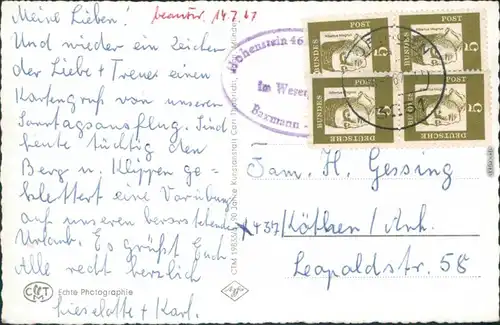 Meine Lieben!
beantw. 14.7.67
Und wieder ein Zeichen
der Liebe + Treue einen
Kartengruß von unserem
Sonntagsausflug. Sind
heute tüchtig den
Berg u. Klippen ge-
klettert eine Vorübung
auf unseren bevorstehenden
Urlaub. Es grüßt Euch
Alle recht herzlich
Lieselotte + Karl.
CTM Echte Photographie
Hohenstein 46
im Weser
Baxmann -
DEUTSCHE BUNDESPOST 5
DEUTSCHE BUNDESPOST 5
DEUTSCHE BUNDESPOST 5
DEUTSCHE BUNDESPOST 5
Fam. H. Gessing
x 437 Köthen/Anh.
Leopoldstr. 58